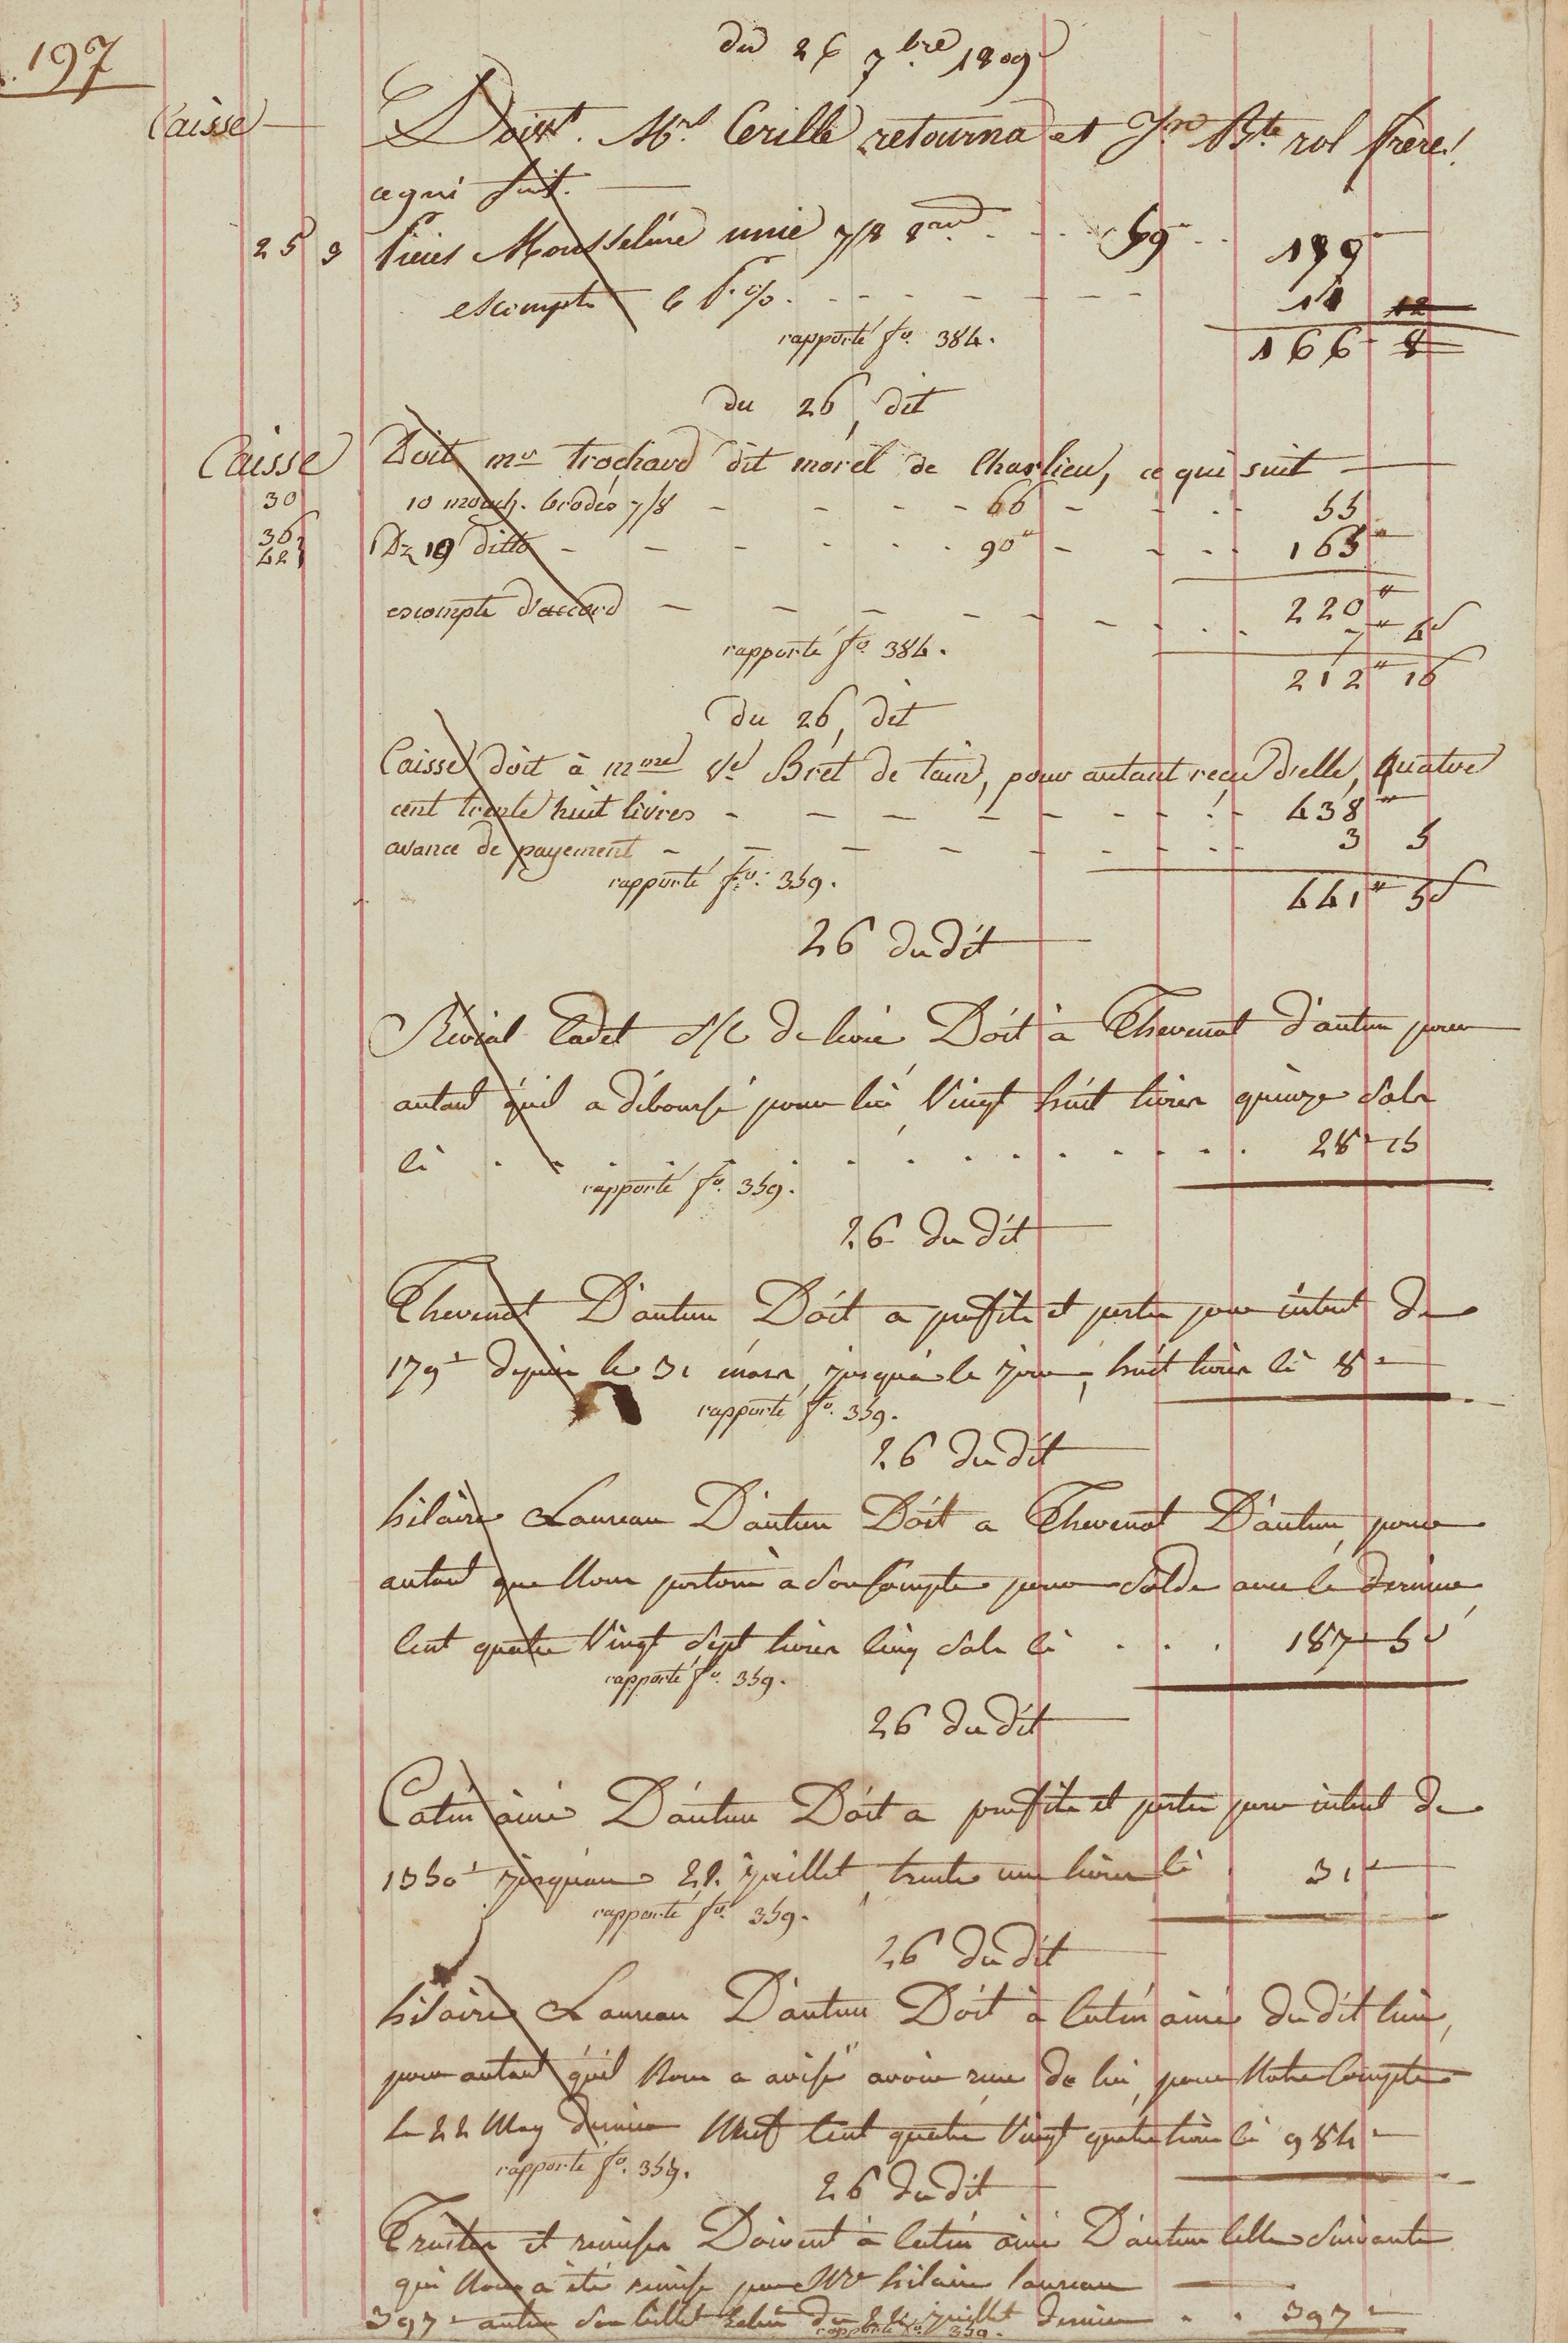 197
du 26 7bre 1809
Caisse Doivt. Mrs Cerille retourna et Jn Bte rol frère
ce qui suit.
25 3 Pieces Mousseline unie 7/8 59 " 199 "
escompte 6 P. % 11 12
rapporté fo. 384. 166 8
du 26, dit
Caisse Doit mr trochard dit morel de Charlieu, ce qui suit
30 10 mouch. brodés 7/8 66 55
36, 42 Dz 19 ditto 90" 165"
220"
escompte d'accord 7" 4s
rapporté fo. 384. 212" 16
du 26, dit
Caisse doit à mme Ve Bret de tain, pour autant reçu d'elle, quatre
cent trente huit livres 438"
avance de payement 3 5
rapporté fo. 359. 441" 5s
26 du dit
Revial Cadet s/c de livré Doit à Thevenot d'autun pour
autant qu'il a déboursé pour lui, Vingt huit livres quinze sols
Ci 28 - 15
rapporté fo. 359.
26 du dit
Thevenot D'autun Doit a proffits et pertes pour intret de
179 depuis le 31 mars, jusqu'à ce jour, huit livres Ci 8 "
rapporté fo. 359.
26 du dit
hilaire Laureau D'autun Doit a Thevenot D'autun, pour
autant que Nous portons a Son Compte pour Solde avec le dernier,
Cent quatre Vingt Sept livres Cinq Sols Ci 187 - 5s
rapporté fo. 359.
26 du dit
Catin ainé D'autun Doit a proffits et pertes pour intret de
1350 jusqu'au 22 juillet, trente une livres Ci 31 "
rapporté fo. 359.
26 du dit
hilaire Laureau D'autun Doit à Catin ainé du dit lieu,
pour autant qu'il Nous a avisé avoir reçu de lui, pour Notre Compte
Le 22 May dernier Neuf Cent quatre Vingt quatre livres Ci 984 "
rapporté fo. 359.
26 du dit
Traites et remises Doivent à Catin ainé D'autun Celle Suivante
qui Nous a été remise par Mr hilaire laureau
397 autun Son billet du 22 juillet dernier 397 "
rapporté fo. 359.